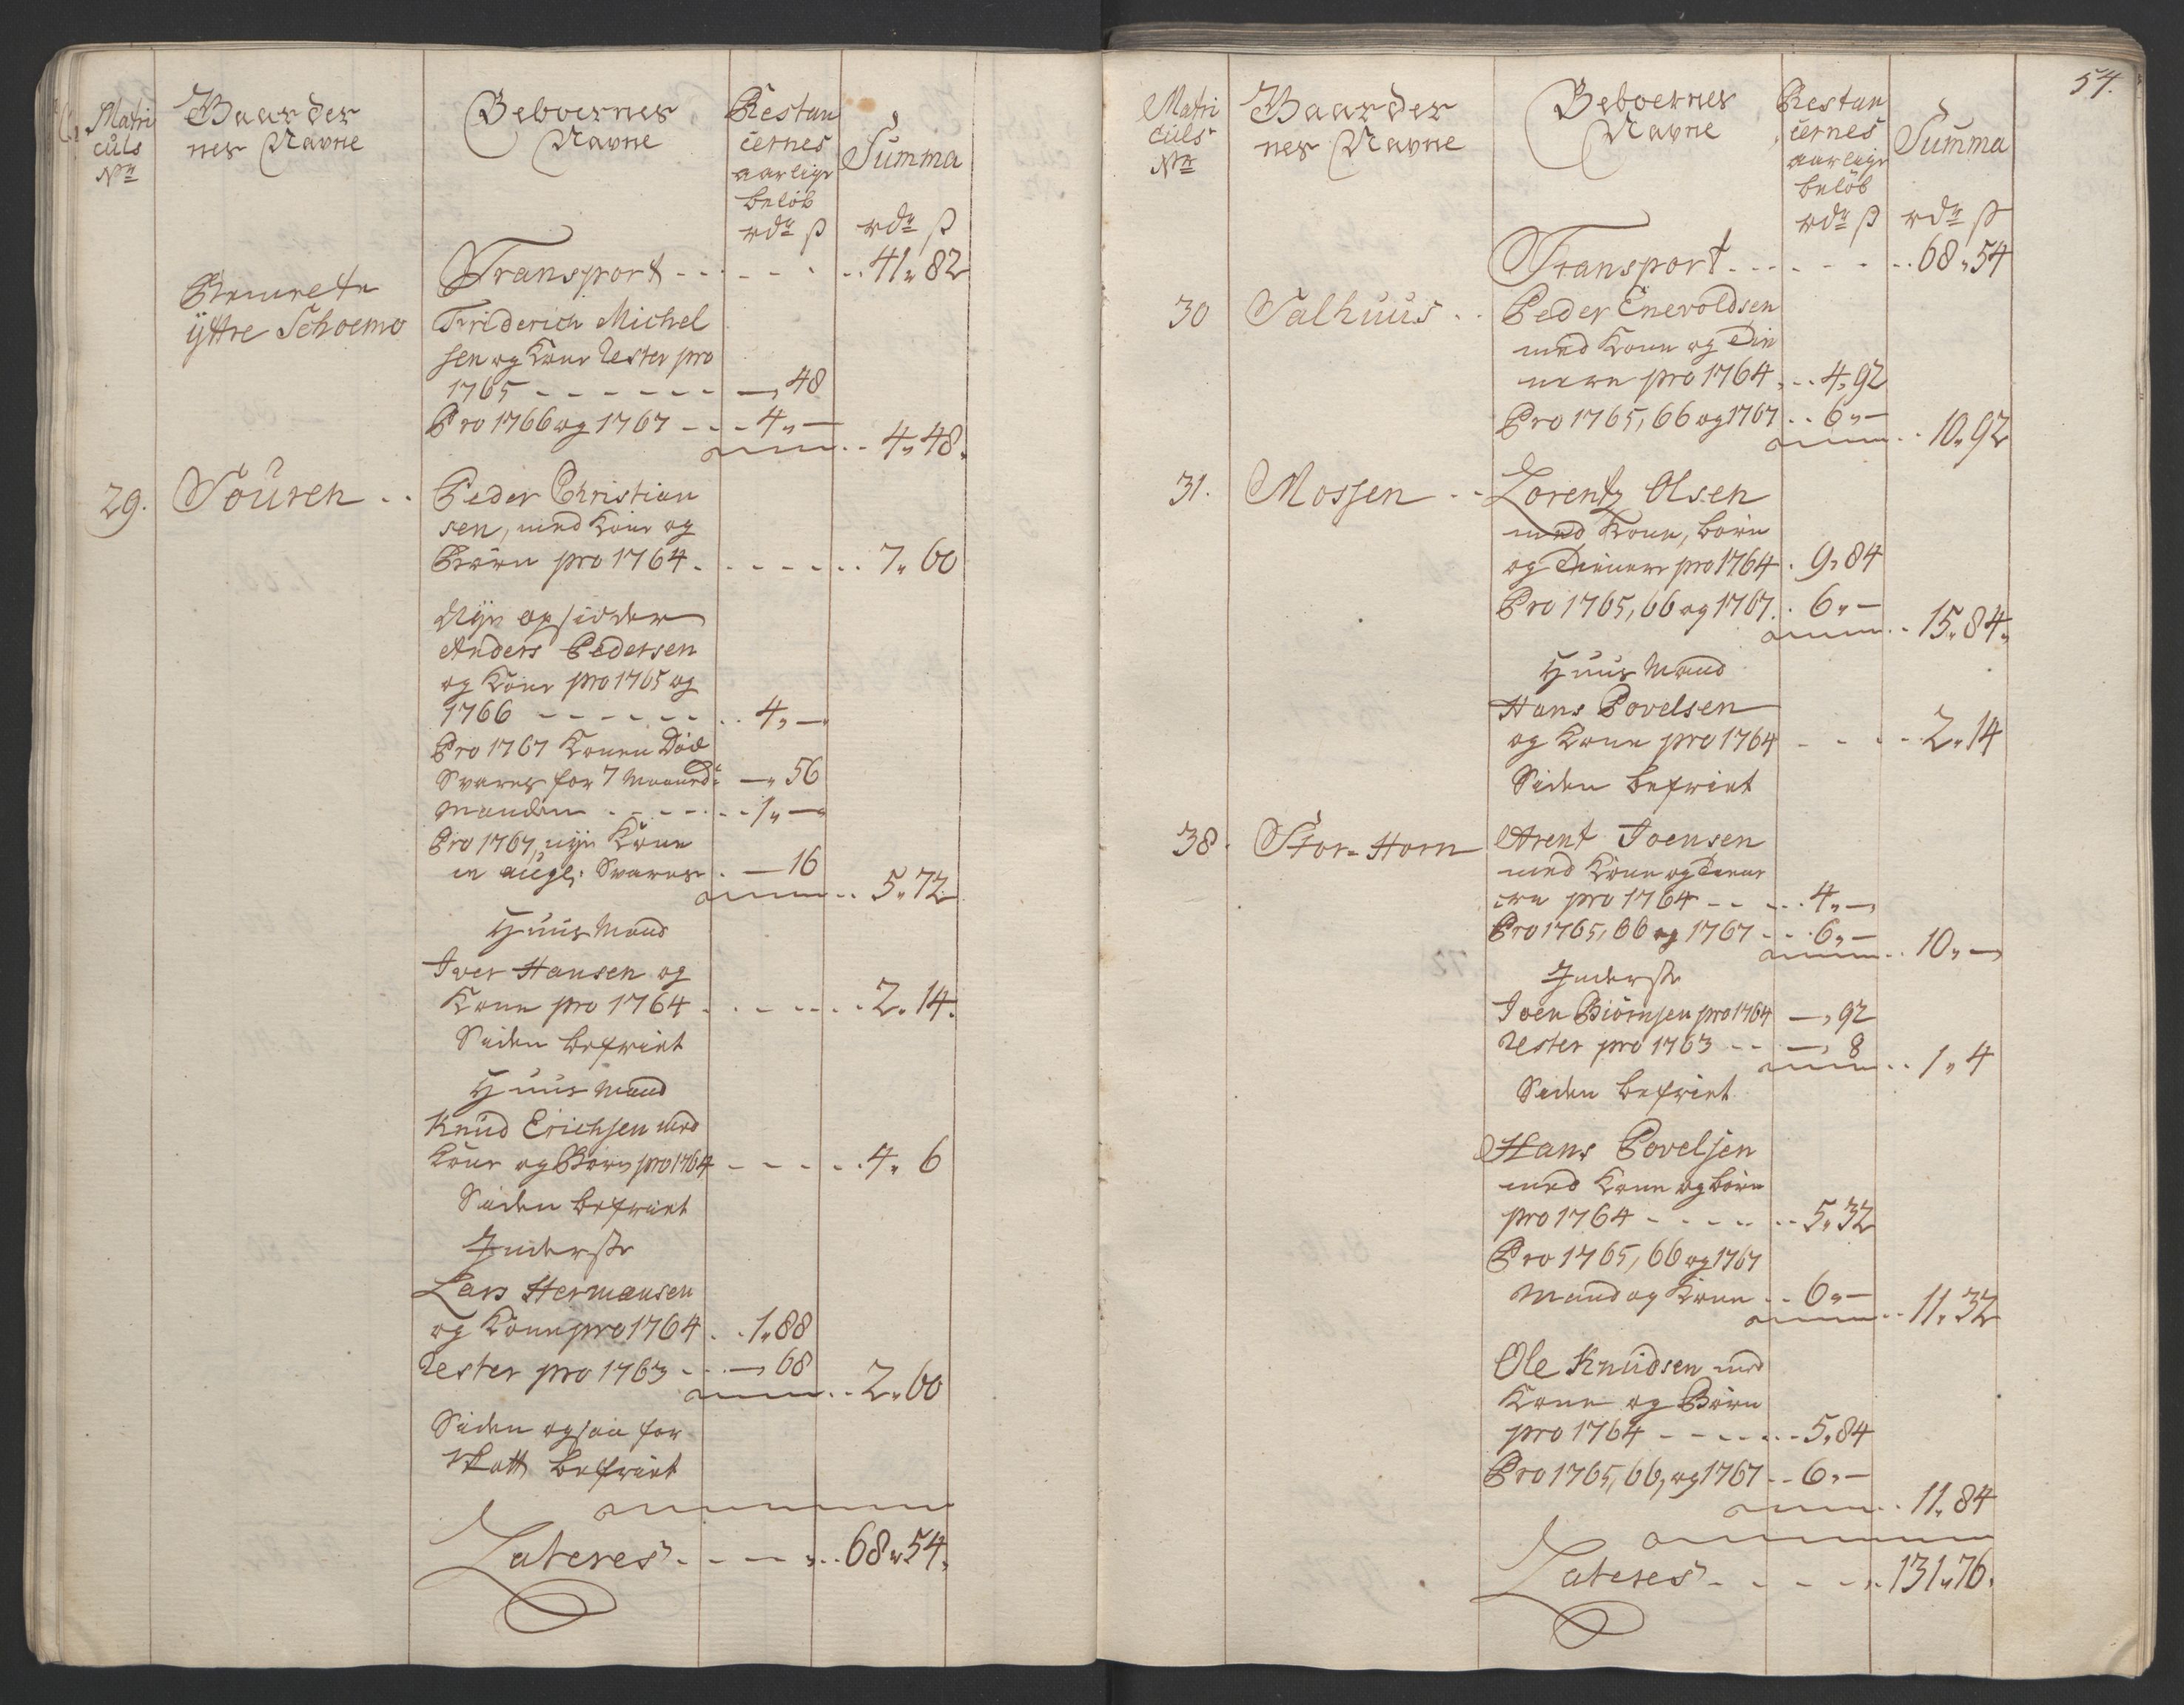 Matri
culs
No
Gaarder
nes Navne
Beboernes
Navne
Restan
cernes
aarlige
beløb
rdr ß
Summa
rdr ß
Transport - - - - - 41 " 82
yttre Schoemo
Friderich Michel
sen og Kone Rester pro
1765 - - - - - - — " 48
Pro 1766 og 1767 - - - 4 " —
4 " 48.
29. Søuren - -
Peder Christian
sen, med Kone og
Børn pro 1764 - - - - - - 7 " 60
Nye opsidder
Anders Pedersen
og Kone pro 1765 og
1766 - - - - - - 4 " —
Pro 1767 Konen Død
Svares for 7 Maaned: — " 56
Manden - - - - - 1 " —
Pro 1767, nye Kone
Svares — 16
5 " 72.
Huus Mand
Iver Hansen og
Kone pro 1764 - - - - - 2 " 14.
Siden befriet
Huus Mand
Knud Erichsen med
Kone og Børn pro 1764 - - - - - 4 " 6
Siden befriet
Inderste
Lars Hermansen
og Kone pro 1764 - - 1 " 88
Rester pro 1763 - - — " 68
2 " 60
Siden ogsaa for
Skatt befriet
Lateres - - - - - 68 " 54.
54.
Matri
culs
No
Gaarder
nes Navne
Beboernes
Navne
Restan
cernes
aarlige
beløb
rdr ß
Summa
rdr ß
Transport - - - - - 68 " 54
30 Salhuus - -
Peder Enevoldsen
med Kone og Die
nere pro 1764 - - 4 " 92
Pro 1765, 66 og 1767 - - 6 " —
10 " 92
31. Mossen - -
Lorentz Olsen
med Kone, børn
og Dienere pro 1764 - 9 " 84
Pro 1765, 66 og 1767 - 6 " —
15 " 84.
Huus Mand
Hans Povelsen
og Kone pro 1764 - - - - 2 " 14
Siden befriet
38. Stor-Horn
Arent Joensen
med Kone og Diene
re pro 1764 - - - - 4 " —
Pro 1765, 66 og 1767 - - - 6 " —
10 " —
Inderste
Joen Biörnsen pro 1764 — " 92
Rester pro 1763 - - — " 8
1 " 4
Siden befriet
Hans Povelsen
med Kone og børn
pro 1764 - - - - - - 5 " 32
Pro 1765, 66 og 1767
Mand og Kone - - 6 " —
11 " 32
Ole Knudsen med
Kone og Børn
pro 1764 - - - - - - 5 " 84
Pro 1765, 66, og 1767 - - 6 " —
11 " 84
Lateres - - - - - 131 " 76.